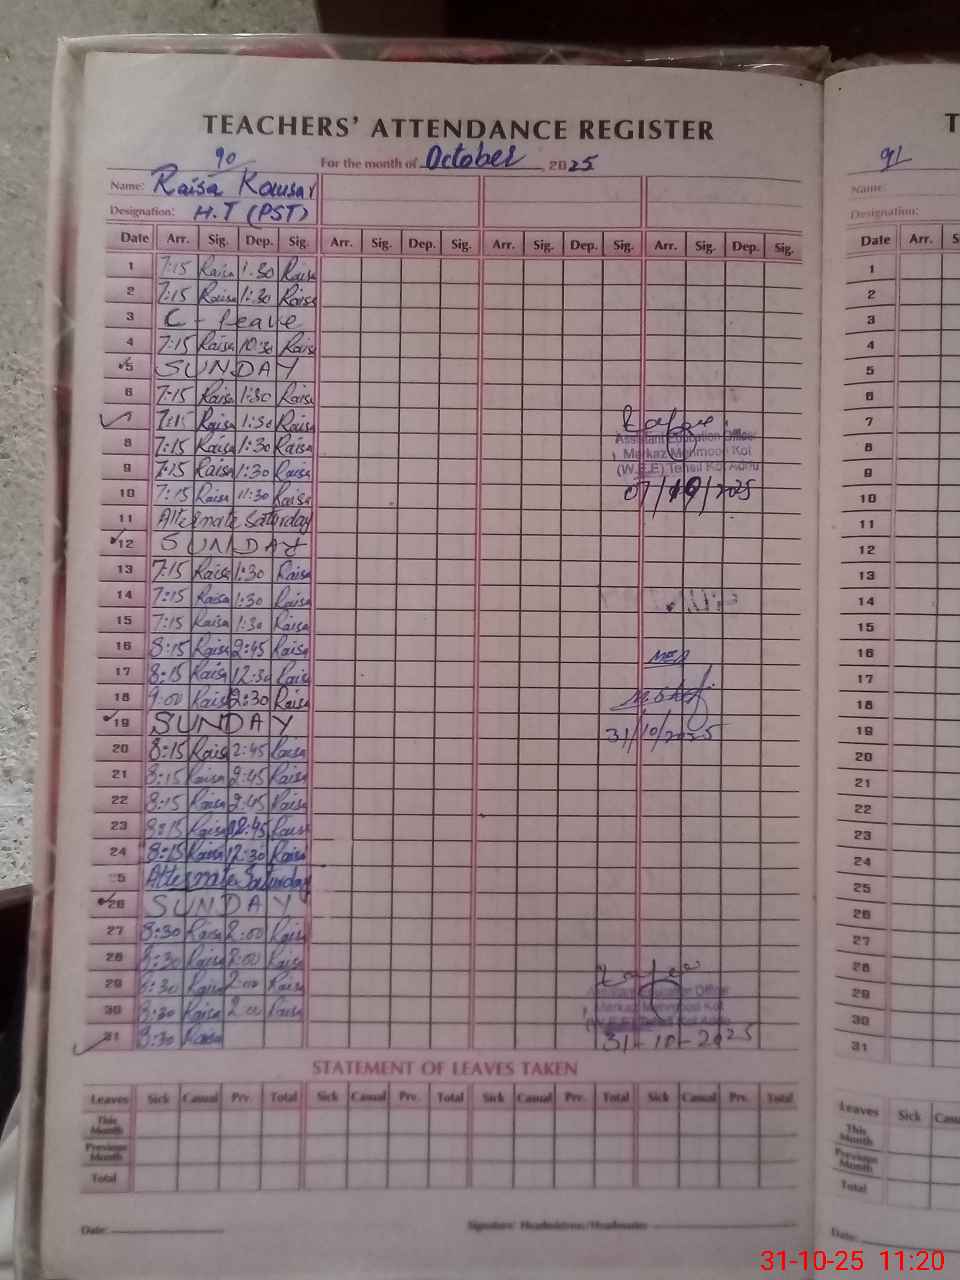 TEACHERS' ATTENDANCE REGISTER
90
For the month of October, 2025
Name: Raisa Kousar
Designation: H.T (PST)
Date Arr. Sig. Dep. Sig. Arr. Sig. Dep. Sig. Arr. Sig. Dep. Sig. Arr. Sig. Dep. Sig.
1 7:15 Raisa 1:30 Raisa
2 7:15 Raisa 1:30 Raisa
3 C - leave
4 7:15 Raisa 10:30 Raisa
5 SUNDAY
6 7:15 Raisa 1:30 Raisa
7 7:15 Raisa 1:30 Raisa
8 7:15 Raisa 1:30 Raisa
9 7:15 Raisa 1:30 Raisa
10 7:15 Raisa 11:30 Raisa
11 Alternate Saturday
12 SUNDAY
13 7:15 Raisa 1:30 Raisa
14 7:15 Raisa 1:30 Raisa
15 7:15 Raisa 1:30 Raisa
16 8:15 Raisa 2:45 Raisa
17 8:15 Raisa 12:30 Raisa
18 9:00 Raisa 2:30 Raisa
19 SUNDAY
20 8:15 Raisa 2:45 Raisa
21 8:15 Raisa 2:45 Raisa
22 8:15 Raisa 2:45 Raisa
23 8:15 Raisa 2:45 Raisa
24 8:15 Raisa 12:30 Raisa
25 Alternate Saturday
26 SUNDAY
27 8:30 Raisa 2:00 Raisa
28 8:30 Raisa 2:00 Raisa
29 8:30 Raisa 2:00 Raisa
30 8:30 Raisa 2:00 Raisa
31 8:30 Raisa
Assistant Education Officer
Markaz Mehmood Kot
(W.E.E) Tehsil Kot Addu
07/10/2025
MEA
31/10/2025
Assistant Education Officer
Markaz Mehmood Kot
(W.E.E) Tehsil Kot Addu
31-10-2025
STATEMENT OF LEAVES TAKEN
Leaves Sick Casual Prv. Total Sick Casual Prv. Total Sick Casual Prv. Total Sick Casual Prv. Total
This Month
Previous Month
Total
Date: Signature: Headmistress/Headmaster
T
91
Name:
Designation:
Date Arr. S
1
2
3
4
5
6
7
8
9
10
11
12
13
14
15
16
17
18
19
20
21
22
23
24
25
26
27
28
29
30
31
Leaves Sick Casu
This Month
Previous Month
Total
Date:
31-10-25 11:20